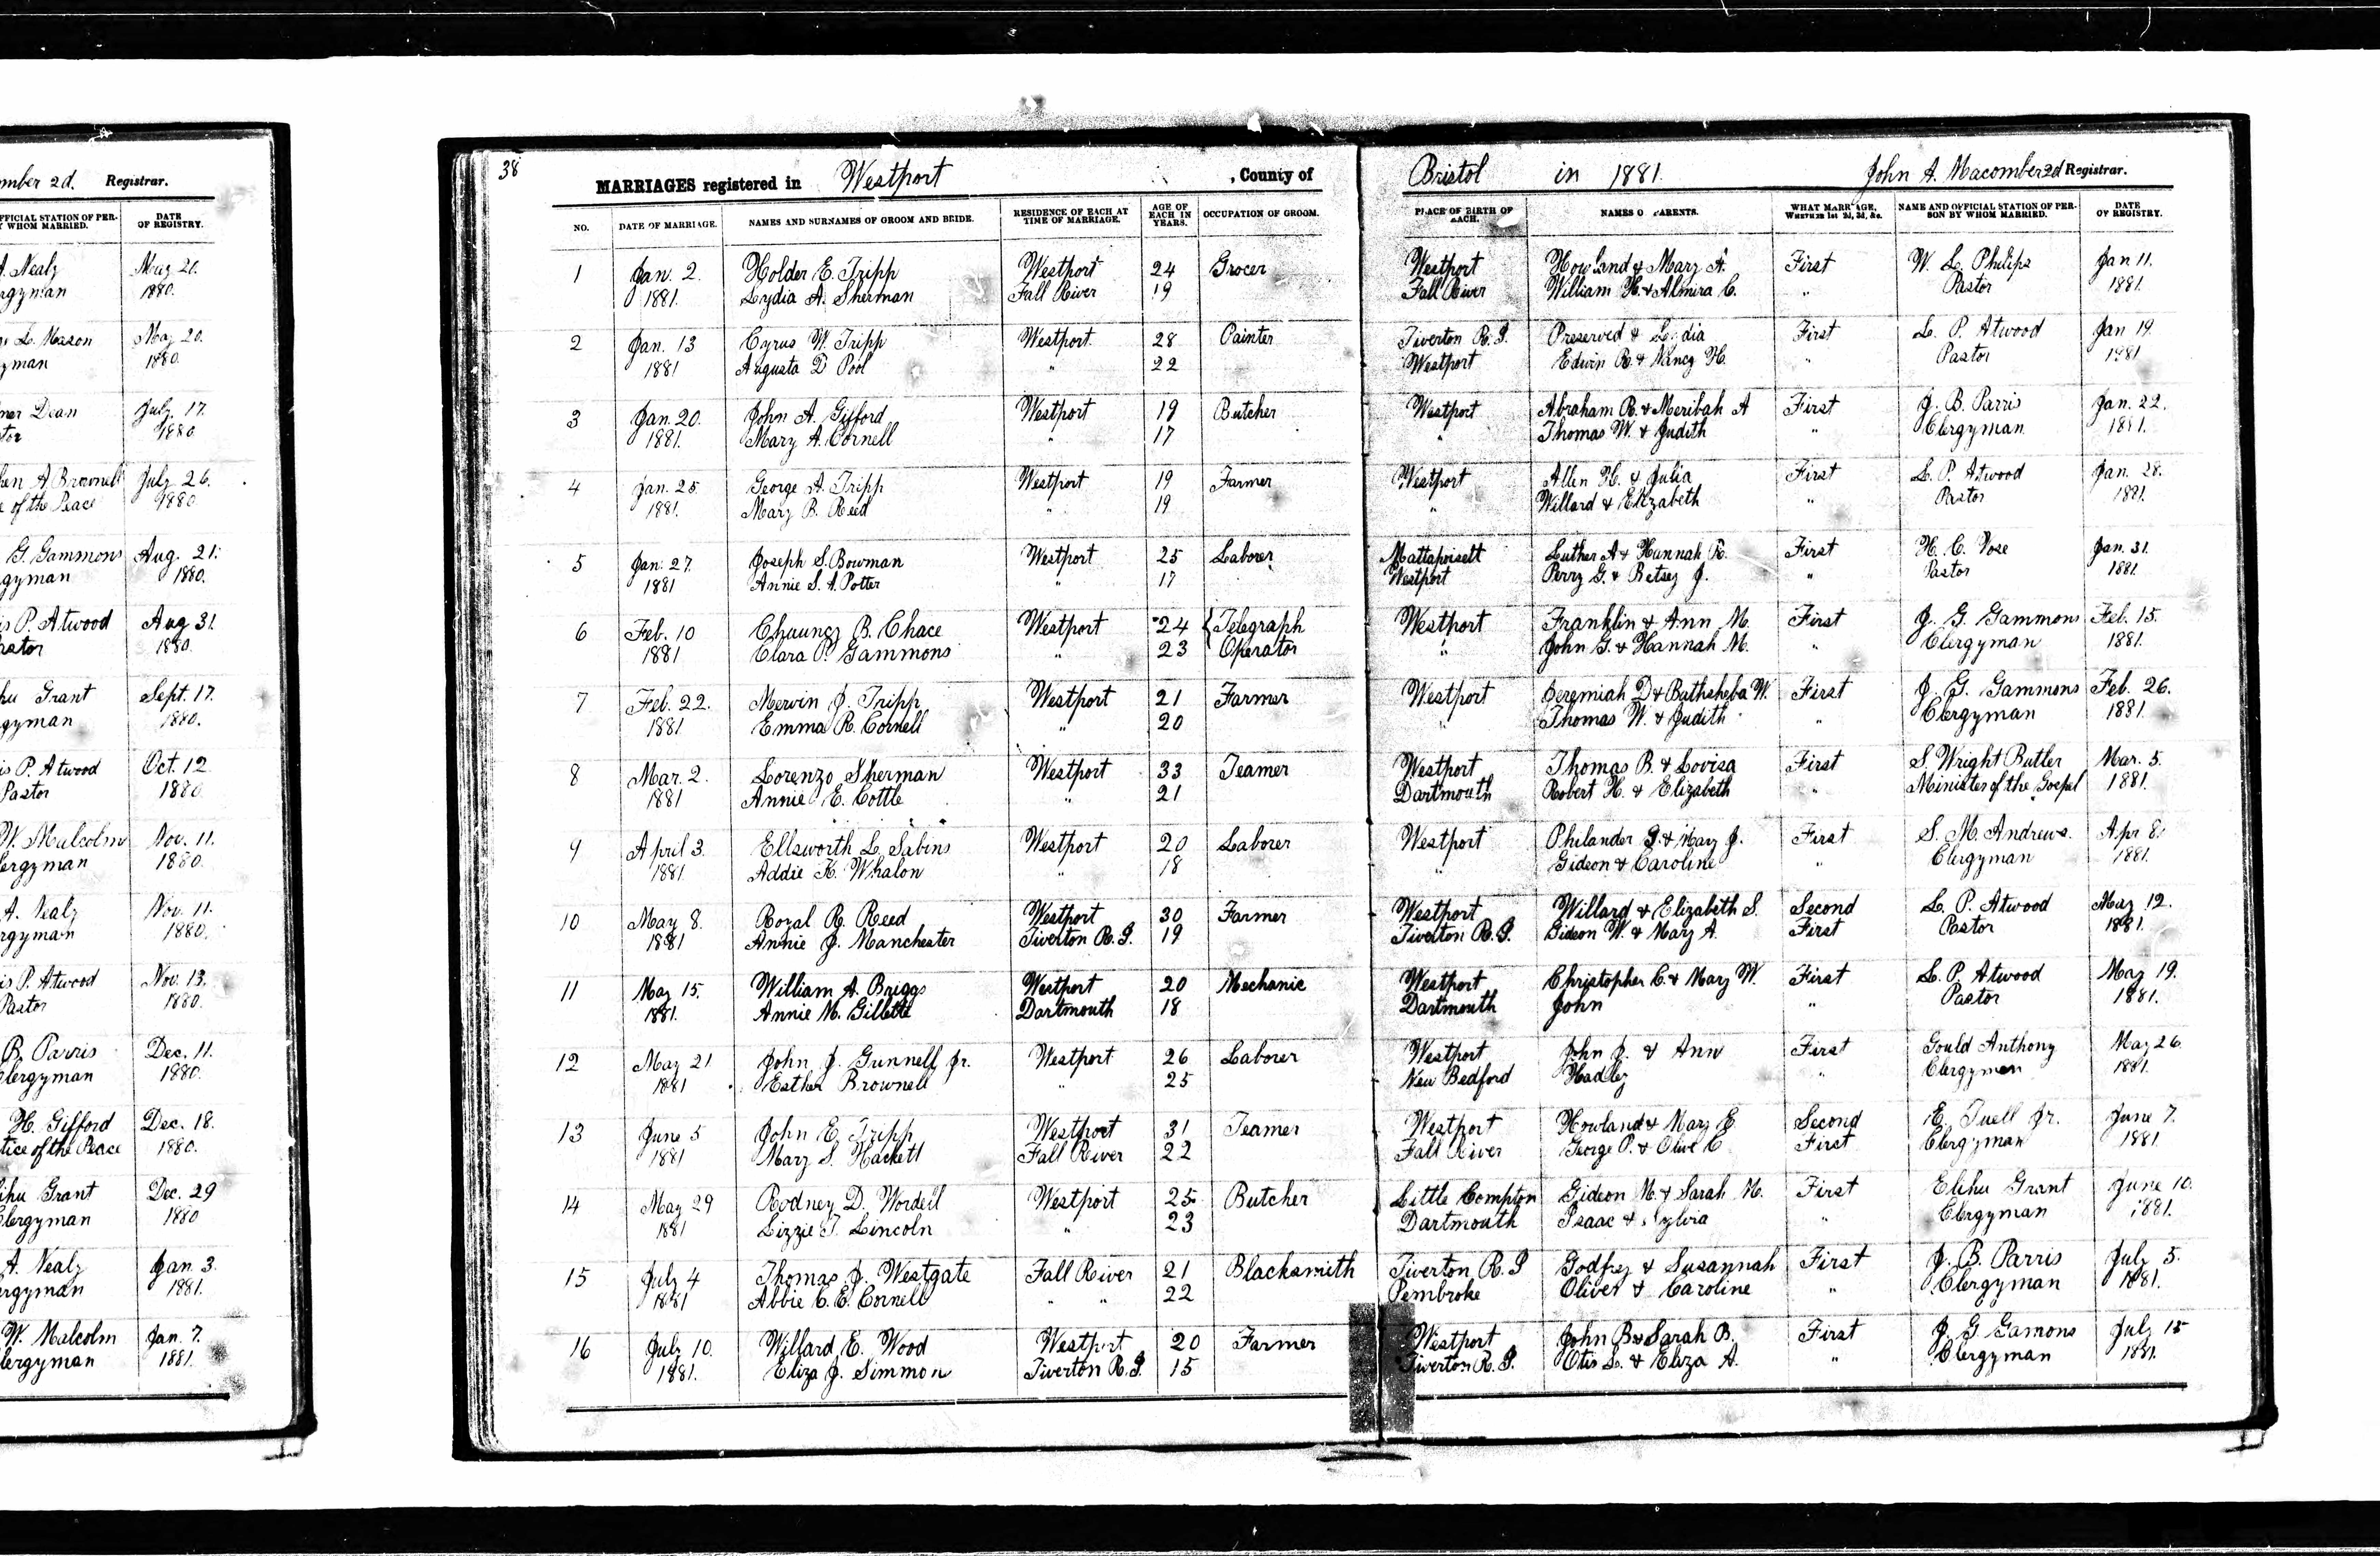 mber 2d. Registrar.
FFICIAL STATION OF PER-
Y WHOM MARRIED.
DATE
OF REGISTRY.
A. Nealy May 21.
rgyman 1880.
L. Mason May 20.
yman 1880.
mer Dean July. 17.
tor 1880
hen A Brownell July 26.
e of the Peace 1880.
G. Gammons Aug. 21.
gyman 1880.
is P. Atwood Aug 31.
astor 1880.
hu Grant Sept. 17.
gyman 1880.
is P. Atwood Oct. 12
Pastor 1880
W. Malcolm Nov. 11.
lergyman 1880.
A. Nealy Nov. 11.
rgyman 1880.
is P. Atwood Nov. 13.
Pastor 1880.
B. Parris Dec. 11.
lergyman 1880.
H. Gifford Dec. 18.
tice of the Peace 1880.
ihu Grant Dec. 29
Clergyman 1880
A. Nealy Jan. 3.
ergyman 1881.
W. Malcolm Jan. 7.
lergyman 1881.
38
MARRIAGES registered in Westport , County of Bristol in 1881. John A. Macomber 2d Registrar.
NO. DATE OF MARRIAGE. NAMES AND SURNAMES OF GROOM AND BRIDE. RESIDENCE OF EACH AT TIME OF MARRIAGE. AGE OF EACH IN YEARS. OCCUPATION OF GROOM. PLACE OF BIRTH OF EACH. NAMES O PARENTS. WHAT MARRIAGE, WHETHER 1st 2d, 3d, &c. NAME AND OFFICIAL STATION OF PERSON BY WHOM MARRIED. DATE OF REGISTRY.
1 Jan. 2. Holder E. Tripp Westport 24 Grocer Westport Howland & Mary A. First W. L. Philips Jan 11.
1881. Lydia A. Sherman Fall River 19 Fall River William H. & Almira C. " Pastor 1881.
2 Jan. 13 Cyrus W. Tripp Westport. 28 Painter Tiverton R. I. Preserved & Lydia First L. P. Atwood Jan 19.
1881 Augusta D Pool " 22 Westport Edwin R. & Nancy H. " Pastor 1881
3 Jan. 20. John A. Gifford Westport 19 Butcher Westport Abraham B. & Meribah A First J. B. Parris Jan. 22.
1881. Mary A. Cornell " 17 " Thomas W. & Judith " Clergyman 1881.
4 Jan. 25 George A. Tripp Westport 19 Farmer Westport Allen H. & Julia First L. P. Atwood Jan. 28.
1881. Mary B. Reed " 19 " Willard & Elizabeth " Pastor 1881.
5 Jan. 27. Joseph S. Bowman Westport 25 Laborer Mattapoisett Luther A & Hannah R. First H. C. Vose Jan. 31.
1881 Annie S. A. Potter " 17 Westport Perry G. & Betsey J. " Pastor 1881.
6 Feb. 10 Chauncy B. Chace Westport 24 Telegraph Westport Franklin & Ann M. First J. G. Gammons Feb. 15.
1881 Clara P. Gammons " 23 Operator " John G. & Hannah M. " Clergyman 1881.
7 Feb. 22. Mervin J. Tripp Westport 21 Farmer Westport Jeremiah D & Bathsheba W. First J. G. Gammons Feb. 26.
1881 Emma R. Cornell " 20 " Thomas W. & Judith " Clergyman 1881.
8 Mar. 2. Lorenzo Sherman Westport 33 Teamer Westport Thomas B. & Lovisa First S. Wright Butler Mar. 5.
1881 Annie E. Cottle " 21 Dartmouth Robert H. & Elizabeth " Minister of the Gospel 1881.
9 April 3. Ellsworth L. Sabins Westport 20 Laborer Westport Philander & Mary J. First S. M. Andrews. Apr 8.
1881. Addie K. Whalon " 18 " Gideon & Caroline " Clergyman 1881.
10 May 8. Royal R. Reed Westport 30 Farmer Westport Willard & Elizabeth S. Second L. P. Atwood May 12.
1881 Annie J. Manchester Tiverton R. I. 19 Tiverton R. I. Gideon W. & Mary A. First Pastor 1881.
11 May 15. William A. Briggs Westport 20 Mechanic Westport Christopher C. & Mary W. First L. P. Atwood May 19.
1881. Annie M. Gillette Dartmouth 18 Dartmouth John " Pastor 1881.
12 May 21 John J. Gunnell Jr. Westport 26 Laborer Westport John J. & Ann First Gould Anthony May 26.
1881 Esther Brownell " 25 New Bedford Hadley " Clergyman 1881.
13 June 5 John E. Tripp Westport 31 Teamer Westport Howland & Mary E Second E. Tuell Jr. June 7.
1881 Mary S. Hackett Fall River 22 Fall River George P. & Olive C First Clergyman 1881.
14 May 29 Rodney D. Wordell Westport 25 Butcher Little Compton Gideon M. & Sarah M. First Elihu Grant June 10.
1881 Lizzie T. Lincoln " 23 Dartmouth Isaac & Sylvia " Clergyman 1881.
15 July 4 Thomas J. Westgate Fall River 21 Blacksmith Tiverton R. I Godfrey & Susannah First J. B. Parris July 5.
1881 Abbie C. E. Cornell " " 22 Pembroke Oliver & Caroline " Clergyman 1881.
16 July 10. Willard E. Wood Westport 20 Farmer Westport John B & Sarah B. First J. G. Gamons July 15
1881. Eliza J. Simmon Tiverton R. I. 15 Tiverton R. I. Otis S. & Eliza A. " Clergyman 1881.